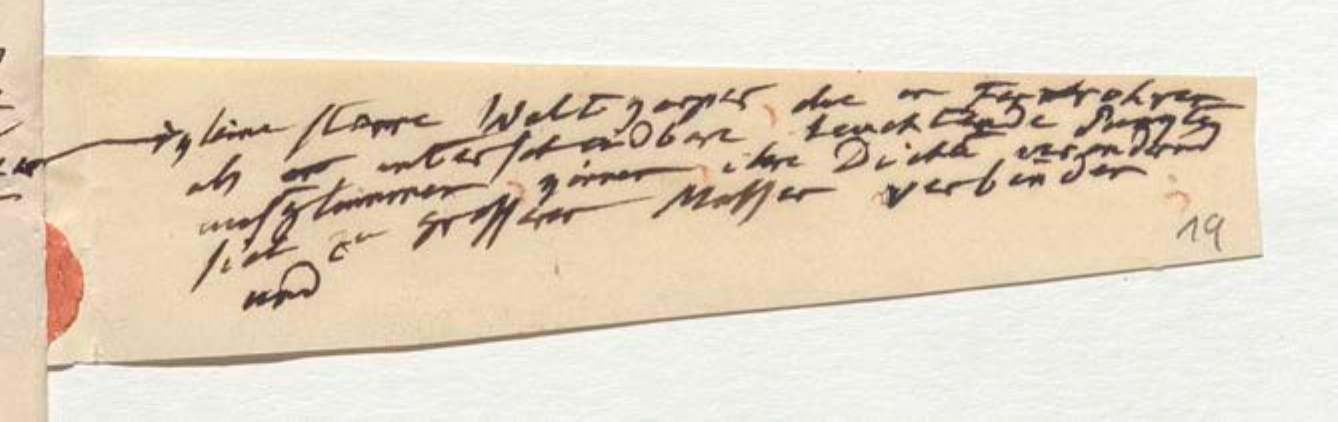 kleine starre Weltkörper, die in Fernröhren
als ununterscheidbare leuchtende Punkte
aufglimmen, können, ihre Dichte verändernd
sich zu grösseren Massen verbinden
und
19